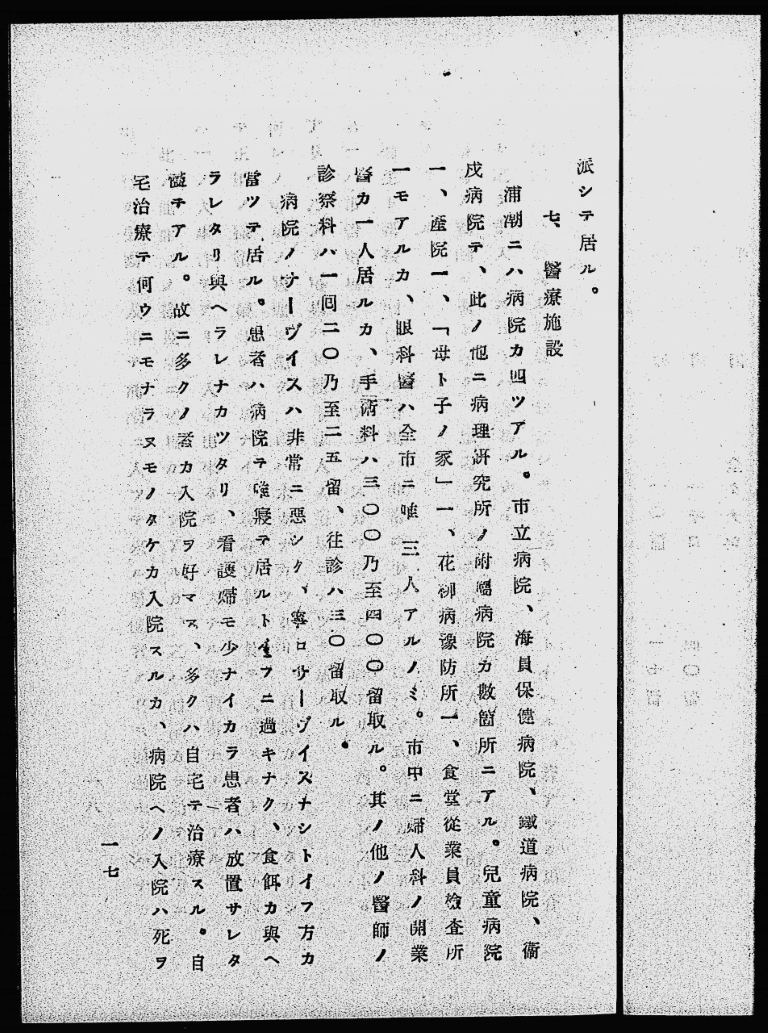 派シテ居ル。
七、醫療施設
浦潮ニハ病院カ四ツアル。市立病院、海員保健病院、鐵道病院、衞
戍病院テ、此ノ他ニ病理硏究所ノ附屬病院カ數箇所ニアル。兒童病院
一、產院一、「母ト子ノ家」一、花柳病豫防所一、食堂從業員檢査所
一モアルカ、眼科醫ハ全市ニ唯三人アルノミ。市中ニ婦人科ノ開業
醫カ一人居ルカ、手術料ハ三〇〇乃至四〇〇留取ル。其ノ他ノ醫師ノ
診察科ハ一囘二〇乃至二五留、往診ハ三〇留取ル。
病院ノサーヴイスハ非常ニ惡シク、寧ロサーヴイスナシトイフ方カ
當ツテ居ル。患者ハ病院テ唯寢テ居ルト云フニ過キナク、食餌カ與ヘ
ラレタリ與ヘラレナカツタリ、看護婦モ少ナイカラ患者ハ放置サレタ
儘テアル。故ニ多クノ者カ入院ヲ好マス、多クハ自宅テ治療スル。自
宅治療テ何ウニモナラヌモノタケカ入院スルカ、病院ヘノ入院ハ死ヲ
一七